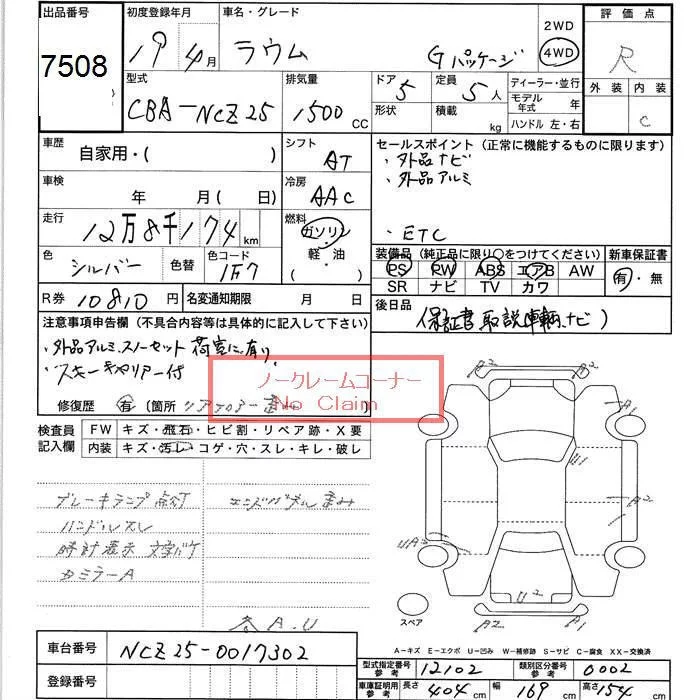 出品番号
7508
初度登録年月
19年4月
車名・グレード
ラウム Gパッケージ
2WD
4WD
評価点
R
外装 内装
C
型式
CBA-NCZ25
排気量
1500 CC
ドア 5
形状
定員 5人
積載 kg
ディーラー・並行
モデル年式 年
ハンドル 左・右
車歴
自家用・( )
シフト
AT
セールスポイント(正常に機能するものに限ります)
・外品ナビ
・外品アルミ
・ETC
車検
年 月( 日)
冷房
AAC
走行
12万8千174km
燃料
ガソリン
軽油
・( )
色
シルバー
色替
色コード
1F7
装備品(純正品に限り○をつけてください)
PS PW ABS エアB AW
SR ナビ TV カワ
新車保証書
有・無
R券 10810円
名変通知期限 月 日
後日品
保証書 取説車輌、ナビ)
注意事項申告欄(不具合内容等は具体的に記入して下さい)
・外品アルミ、スノーセット 荷室に有り
・スキーキャリアー付
ノークレームコーナー
No Claim
修復歴 有(箇所
検査員記入欄
FW キズ・飛石・ヒビ割・リペア跡・X要
内装 キズ・汚レ・コゲ・穴・スレ・キレ・破レ
ブレーキランプ点灯
エンドパネル歪み
ハンドルスレ
時計表示 文字バケ
カミラーA
各A.U
A2
A2
A1
U1
A2
UA3
U2
A2
A1
スペア
A-キズ E-エクボ U-凹み W-補修跡 S-サビ C-腐食 XX-交換済
車台番号
NCZ25-0017302
登録番号
型式指定番号 参考
12102
類別区分番号 参考
0002
車庫証明用 参考
長さ 404cm
幅 169cm
高さ 154cm